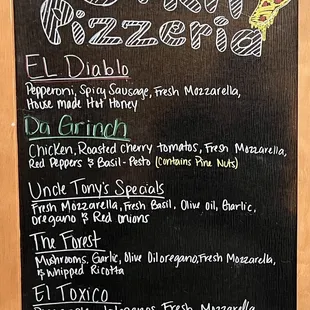 Pizzeria
EL Diablo
Pepperoni, Spicy Sausage, Fresh Mozzarella,
House made Hot Honey
Da Grinch
Chicken, Roasted cherry tomatoes, Fresh Mozzarella,
Red Peppers & Basil-Pesto (Contains Pine Nuts)
Uncle Tony's Specials
Fresh Mozzarella, Fresh Basil, Olive oil, Garlic,
oregano & Red onions
The Forest
Mushrooms, Garlic, Olive Oil, oregano, Fresh Mozzarella,
& Whipped Ricotta
El Toxico
Jalapenos, Fresh Mozzarella